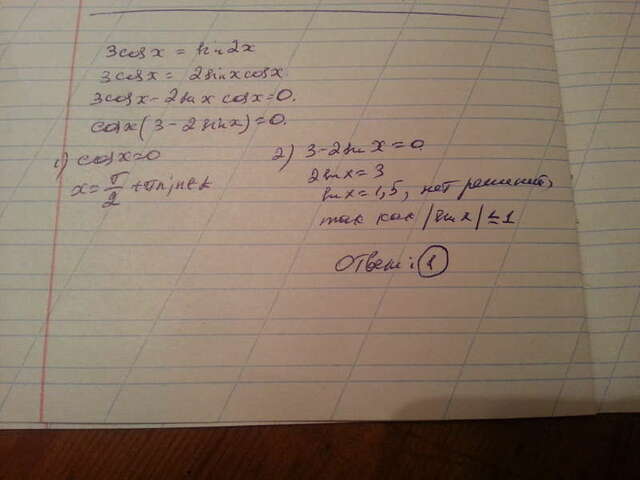 3cosx = sin2x
3cosx = 2sinxcosx
3cosx - 2sinx cosx = 0.
cosx(3 - 2sinx) = 0.
1) cosx = 0
x = π/2 + πn, n ∈ Z
2) 3 - 2sinx = 0
2sinx = 3
sinx = 1,5, нет решений,
так как |sinx| ≤ 1
Ответ: 1